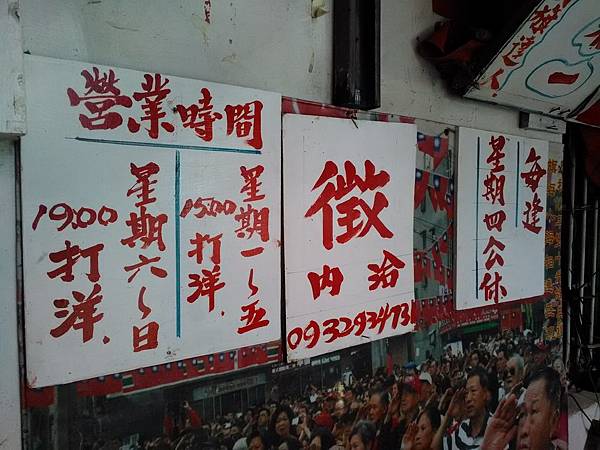 營業時間
星期一~五
15:00打洋.
星期六~日
19:00打洋.
徵
內洽
0932934731
每逢
星期四公休